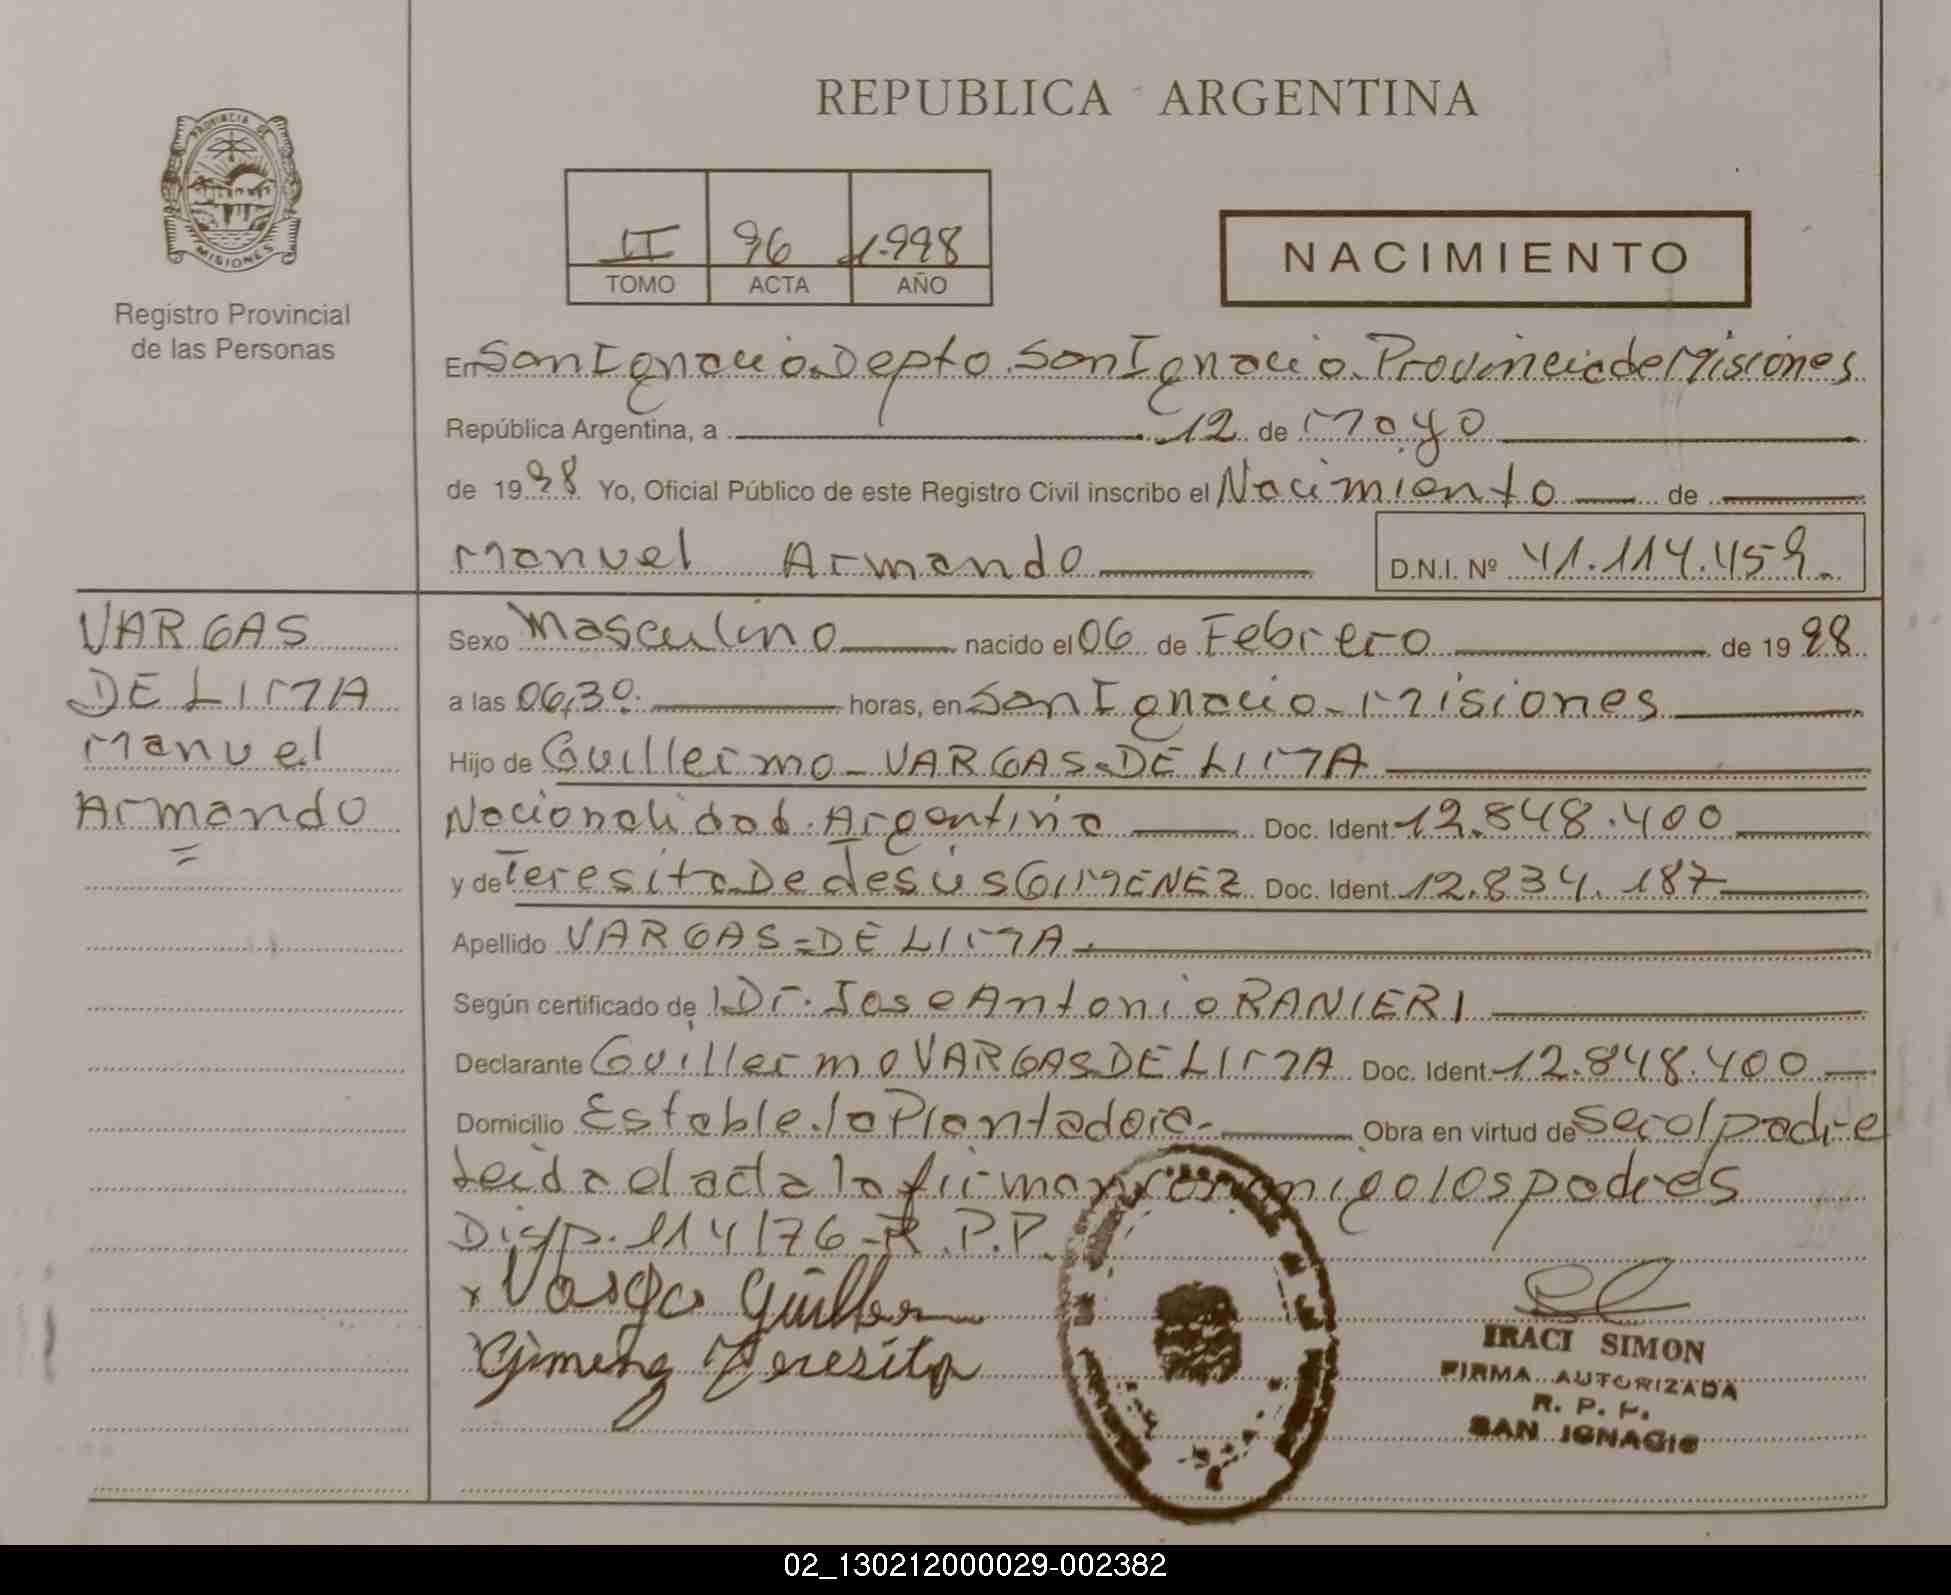 REPUBLICA ARGENTINA
PROVINCIA DE
MISIONES
Registro Provincial
de las Personas
II 96 1.998
TOMO ACTA AÑO
NACIMIENTO
En San Ignacio. Depto. San Ignacio. Provincia de Misiones
República Argentina, a 12 de Mayo
de 1998 Yo, Oficial Público de este Registro Civil inscribo el Nacimiento de
Manuel Armando D.N.I. Nº 41.114.459.
VARGAS
DE LIMA
Manuel
Armando
=
Sexo Masculino nacido el 06 de Febrero de 1998
a las 06,30. horas, en San Ignacio - Misiones
Hijo de Guillermo - VARGAS DE LIMA
Nacionalidad. Argentina Doc. Ident. 12.848.400
y de Teresita De Jesús GIMENEZ Doc. Ident. 12.834.187
Apellido VARGAS = DE LIMA.
Según certificado de Dr. Jose Antonio RANIERI
Declarante Guillermo VARGAS DE LIMA Doc. Ident. 12.848.400
Domicilio Estable. la Plantadora - Obra en virtud de ser el padre
Leida el acta la firman conmigo los padres
Disp. 114/76 - R.P.P.
x Vargas Guiller
Gimenez Teresita
IRACI SIMON
FIRMA AUTORIZADA
R. P. P.
SAN IGNACIO
02_130212000029-002382